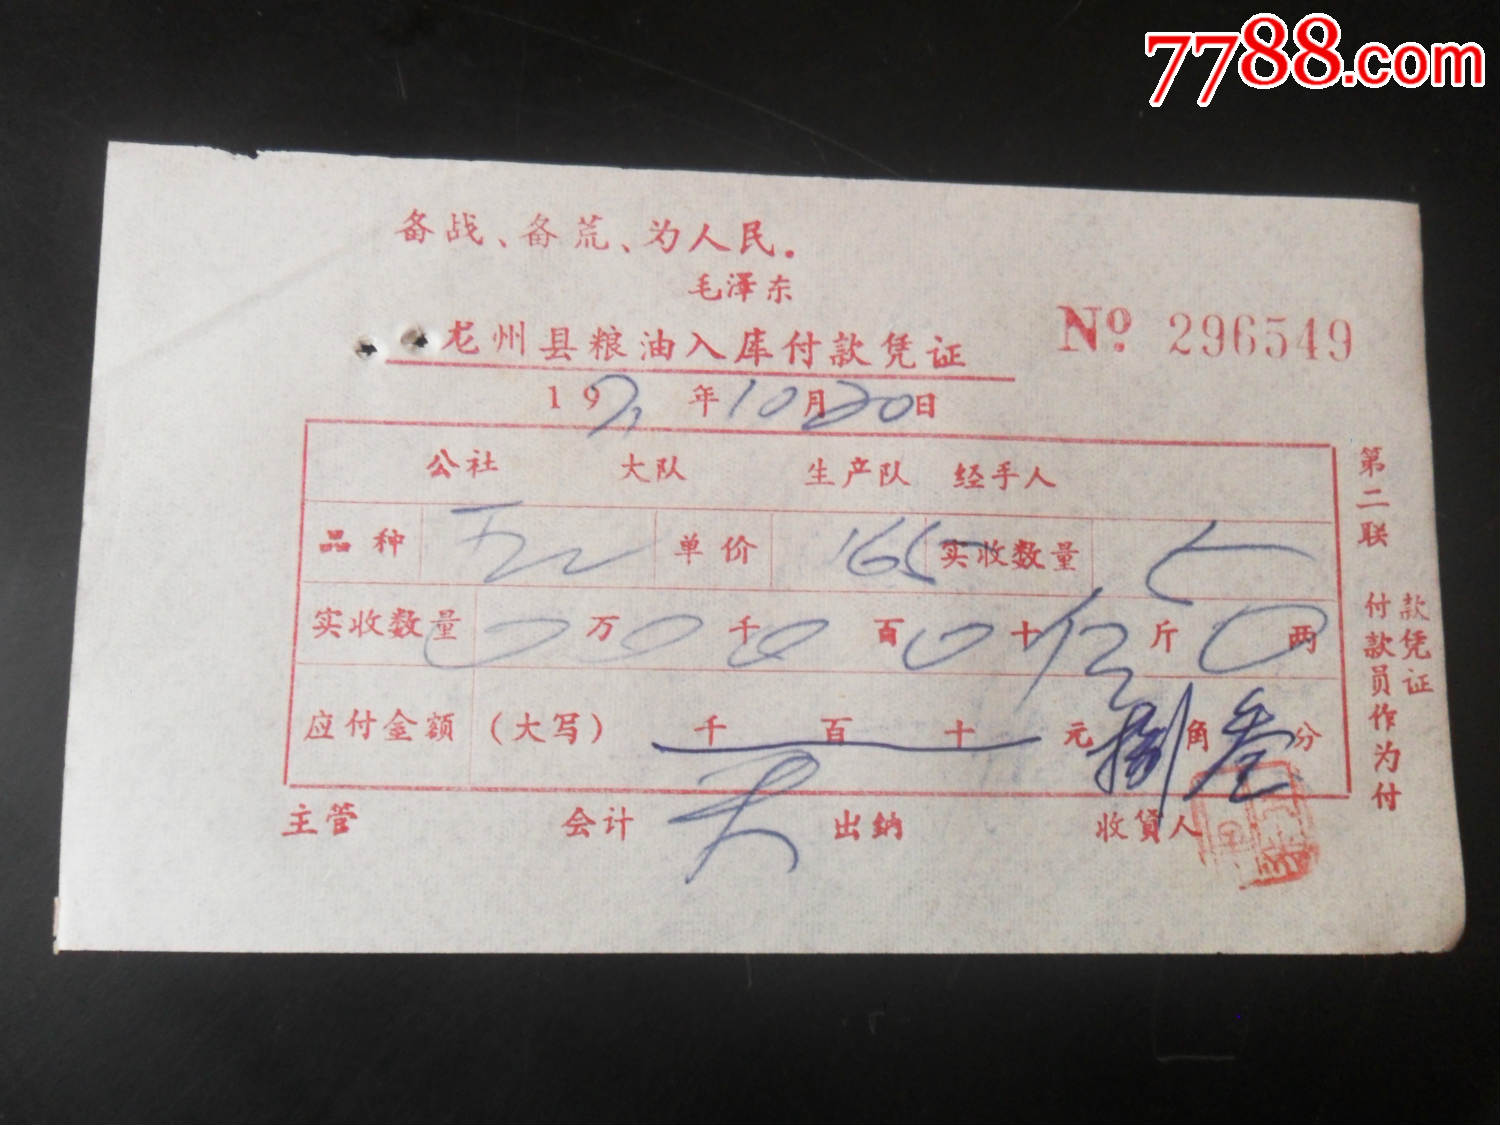 7788.com
备战、备荒、为人民.
毛泽东
龙州县粮油入库付款凭证
№ 296549
1971年10月20日
公社 大队 生产队 经手人
品种 单价 165 实收数量
实收数量 0万0千0百0十伍斤0两
应付金额 (大写) 千 百 十 元捌角叁分
主管 会计 出纳 收贷人
第二联 付款员作为付
款凭证